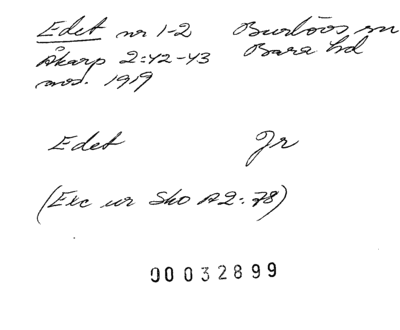 Edet nr 1-2 Burlövs sn
Åkarp 2:42-43 Bara hd
mos. 1919
Edet Jr
(Exc ur Sko A2:78)
00032899